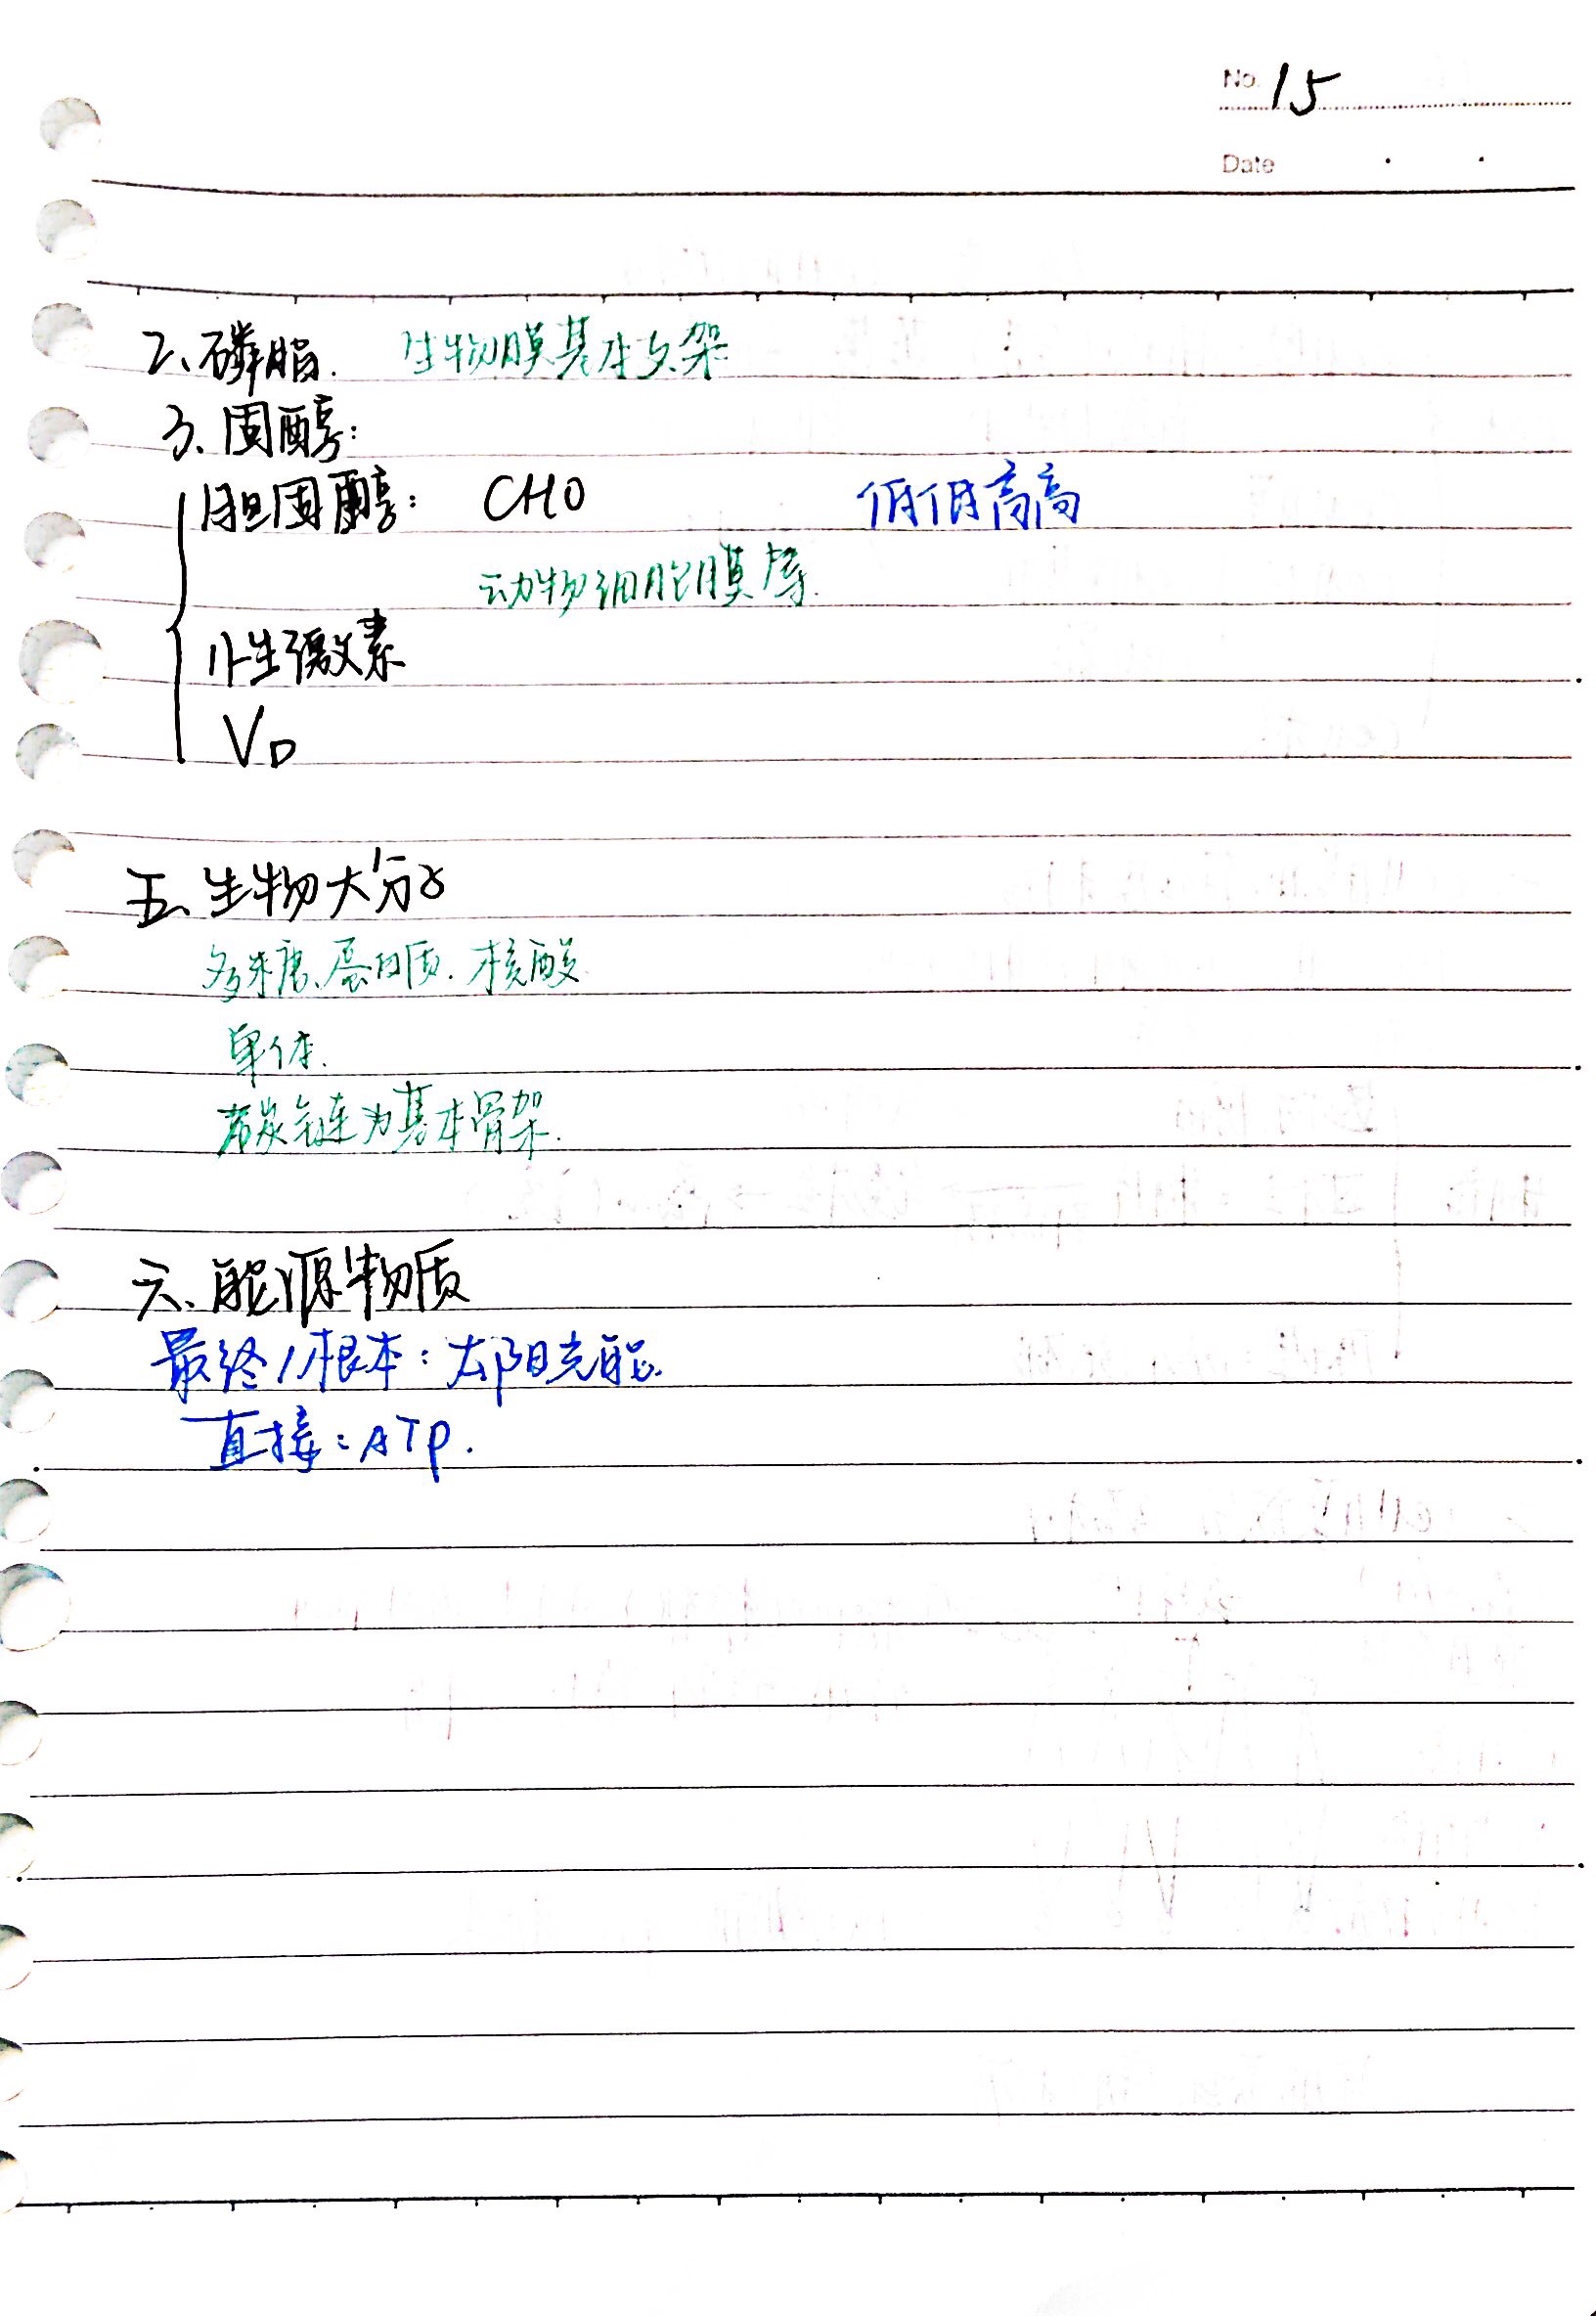 No. 15
Date
2、磷脂. 生物膜基本支架
3、固醇:
胆固醇: CHO 低低高高
动物细胞膜等.
性激素
VD
五、生物大分子
多糖、蛋白质. 核酸
单体.
碳链为基本骨架.
六、能源物质
最终/根本: 太阳光能.
直接: ATP.